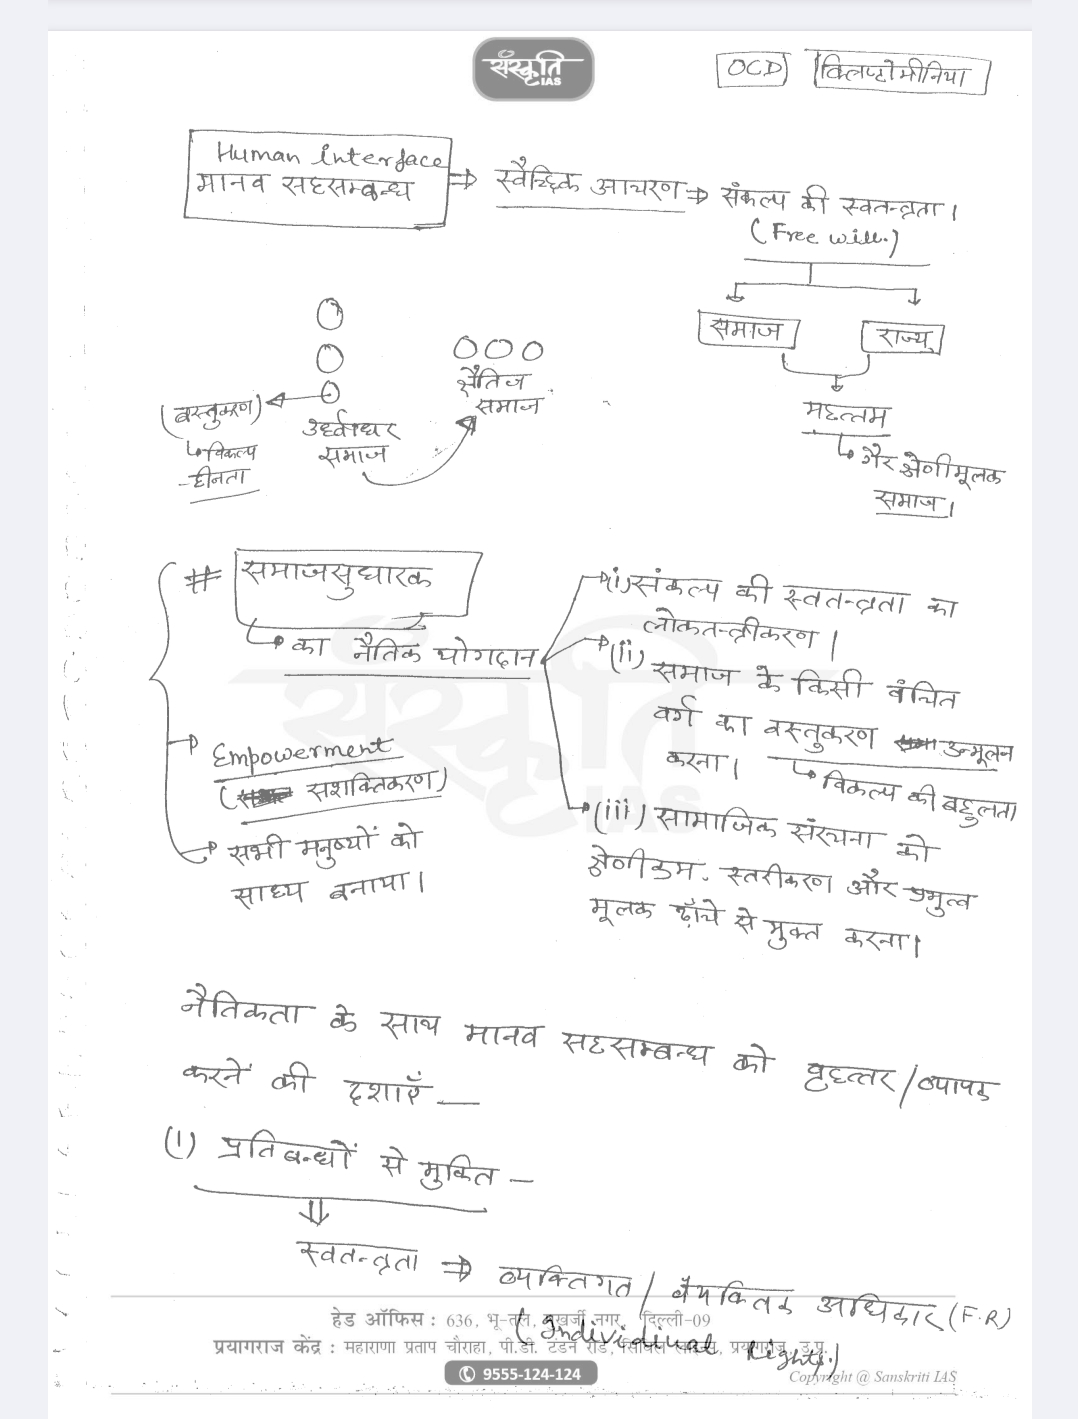 संस्कृति IAS
OCD क्लिप्टोमीनिया
Human interface
मानव सहसम्बन्ध ⇒ स्वैच्छिक आचरण ⇒ संकल्प की स्वतन्त्रता।
(Free will.)
समाज राज्य
(वस्तुकरण)
↳ विकल्प
हीनता
उर्ध्वाधर
समाज
क्षैतिज
समाज
महत्तम
↳ गैर श्रेणीमूलक
समाज।
# समाजसुधारक
↳ का नैतिक योगदान
(i) संकल्प की स्वतन्त्रता का
लोकतन्त्रीकरण।
(ii) समाज के किसी वंचित
वर्ग का वस्तुकरण उन्मूलन
करना।
↳ विकल्प की बहुलता
(iii) सामाजिक संरचना को
श्रेणीक्रम, स्तरीकरण और प्रभुत्व
मूलक ढाँचे से मुक्त करना।
Empowerment
(सशक्तिकरण)
सभी मनुष्यों को
साध्य बनाया।
नैतिकता के साथ मानव सहसम्बन्ध को वृहत्तर/व्यापक
करने की दशाएँ —
(1) प्रतिबन्धों से मुक्ति —
⇓
स्वतन्त्रता ⇒ व्यक्तिगत/वैयक्तिक अधिकार (F.R)
(Individiual Rights.)
हेड ऑफिस : 636, भू-तल, मुखर्जी नगर, दिल्ली-09
प्रयागराज केंद्र : महाराणा प्रताप चौराहा, पी.डी. टंडन रोड, सिविल लाइन्स, प्रयागराज, उ.प्र.
9555-124-124
Copyright @ Sanskriti IAS